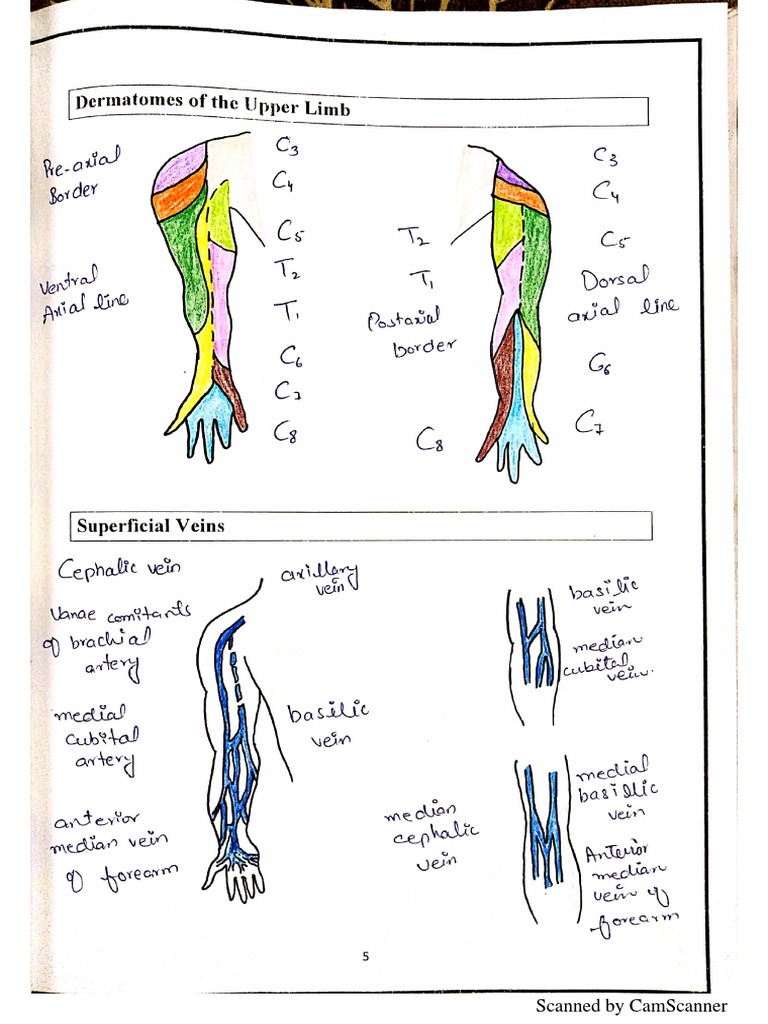 Dermatomes of the Upper Limb
Pre-axial
Border
Ventral
Axial line
C3
C4
C5
T2
T1
C6
C7
C8
T2
T1
Postaxial
border
C8
C3
C4
C5
Dorsal
axial line
C6
C7
Superficial Veins
Cephalic vein
Vanae comitants
of brachial
artery
medial
cubital
artery
anterior
median vein
of forearm
axillary
vein
basilic
vein
basilic
vein
median
cubital
vein.
median
cephalic
vein
medial
basillic
vein
Anterior
median
vein of
forearm
5
Scanned by CamScanner